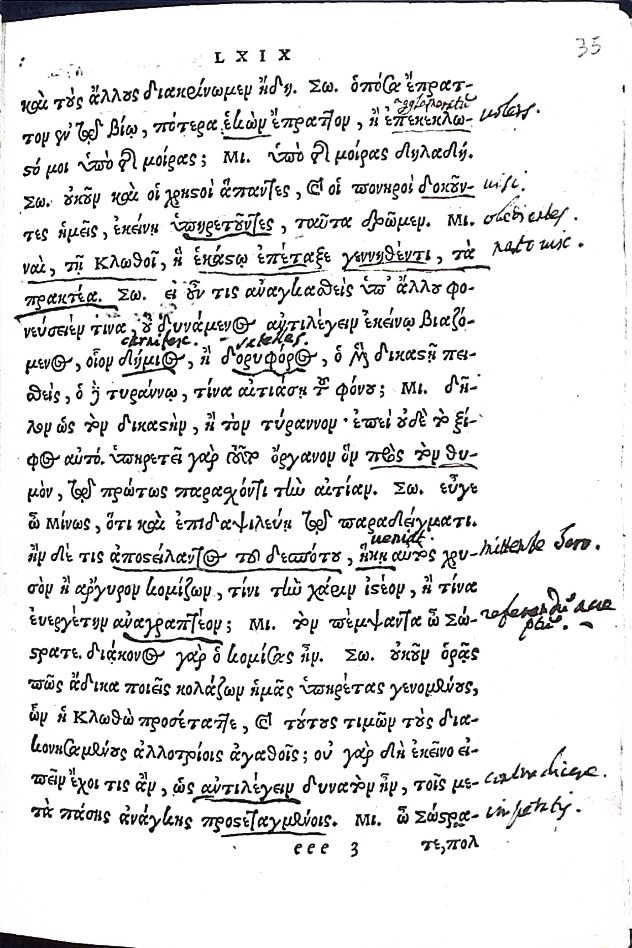 LXIX
35
καὶ τοὺς ἄλλους διακρίνωμεν ἤδη. Σω. ὁπόσα ἔπρατ-
τον ἐν τῷ βίῳ, πότερα ἑκὼν ἔπραττον, ἢ ἐπεκεκλω-
volens.
στό μοι ὑπὸ τῆς μοίρας; Μι. ὑπὸ τῆς μοίρας δηλαδή.
Σω. οὐκοῦν καὶ οἱ χρηστοὶ ἅπαντες, καὶ οἱ πονηροὶ δοκοῦν-
τες ἡμεῖς, ἐκείνῃ ὑπηρετοῦντες, ταῦτα δρῶμεν. Μι.
ναὶ, τῇ Κλωθοῖ, ἣ ἑκάστῳ ἐπέταξε γεννηθέντι, τὰ
πρακτέα. Σω. εἰ οὖν τις ἀναγκασθεὶς ὑπ' ἄλλου φο-
νεύσειέν τινα, οὐ δυνάμενος ἀντιλέγειν ἐκείνῳ βιαζο-
carnifex. satelles.
μένῳ, οἷον δήμιος, ἢ δορυφόρος, ὁ μὲν δικαστῇ πει-
σθεὶς, ὁ δὲ τυράννῳ, τίνα αἰτιάσῃ τοῦ φόνου; Μι. δῆ-
λον ὡς τὸν δικαστὴν, ἢ τὸν τύραννον· ἐπεὶ οὐδὲ τὸ ξί-
φος αὐτό. ὑπηρετεῖ γὰρ τοῦτο ὄργανον ὂν πρὸς τὸν θυ-
μὸν, τῷ πρώτως παρασχόντι τὴν αἰτίαν. Σω. εὖγε
ὦ Μίνως, ὅτι καὶ ἐπιδαψιλεύῃ τῷ παραδείγματι.
ueniat.
ἢν δέ τις ἀποστείλαντος τοῦ δεσπότου, ἥκῃ αὐτὸς χρυ-
mittente
σὸν ἢ ἄργυρον κομίζων, τίνι τὴν χάριν ἰστέον, ἢ τίνα
εὐεργέτην ἀναγραπτέον; Μι. τὸν πέμψαντα ὦ Σώ-
στρατε. διάκονος γὰρ ὁ κομίσας ἦν. Σω. οὐκοῦν ὁρᾷς
πῶς ἄδικα ποιεῖς κολάζων ἡμᾶς ὑπηρέτας γενομένους,
ὧν ἡ Κλωθὼ προσέταττε, καὶ τούτους τιμῶν τοὺς δια-
κονησαμένους ἀλλοτρίοις ἀγαθοῖς; οὐ γὰρ δὴ ἐκεῖνο εἰ-
πεῖν ἔχοι τις ἂν, ὡς ἀντιλέγειν δυνατὸν ἦν, τοῖς με-
contradicere.
τὰ πάσης ἀνάγκης προστεταγμένοις. Μι. ὦ Σώστρα-
eee 3 τε, πολ